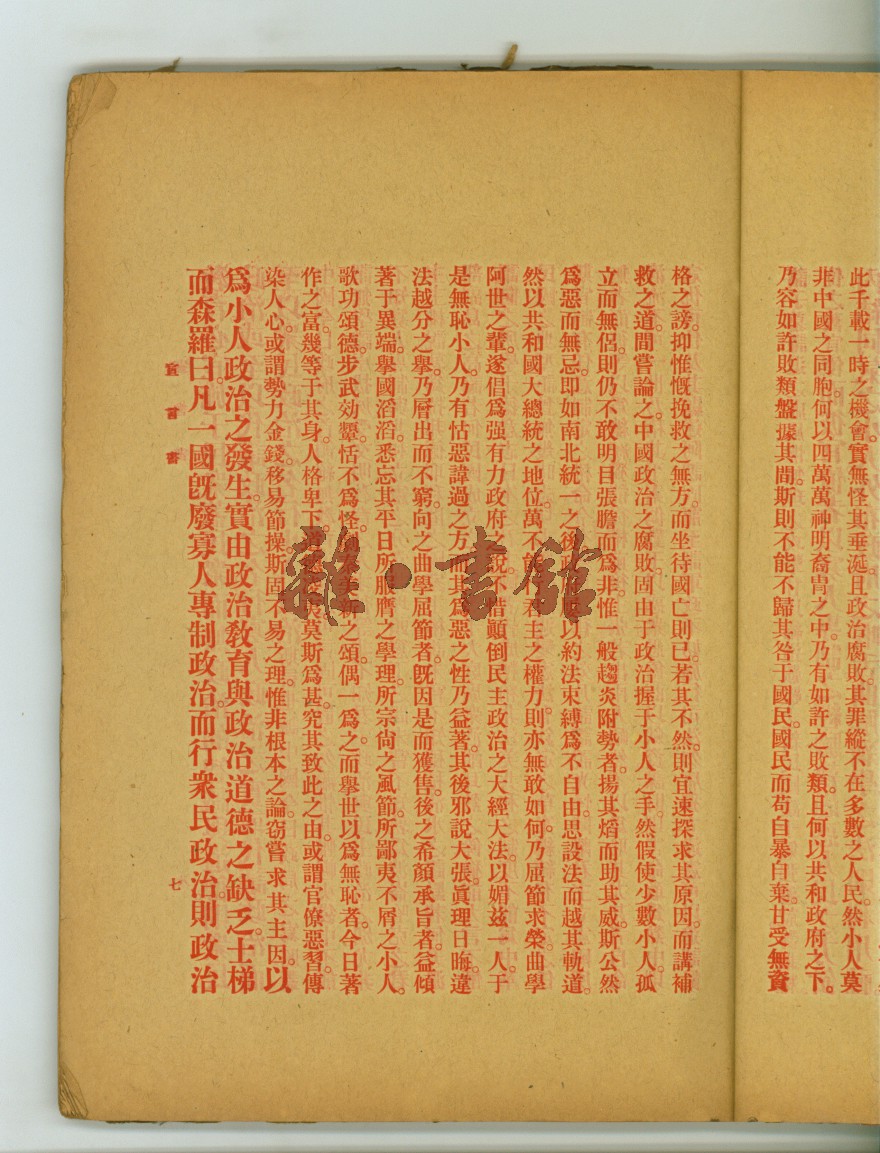 此千載一時之機會。實無怪其垂涎。且政治腐敗。其罪縱不在多數之人民。然小人莫
非中國之同胞。何以四萬萬神明裔胄之中。乃有如許之敗類。且何以共和政府之下。
乃容如許敗類盤據其間。斯則不能不歸其咎于國民。國民而苟自暴自棄。甘受無資
格之謗。抑惟慨挽救之無方。而坐待國亡則已。若其不然。則宜速探求其原因。而講補
救之道。間嘗論之。中國政治之腐敗。固由于政治握于小人之手。然假使少數小人。孤
立而無侶。則仍不敢明目張膽而為非。惟一般趨炎附勢者。揚其熖而助其威。斯公然
為惡而無忌。即如南北統一之後。以約法束縛為不自由。思設法而越其軌道。
然以共和國大總統之地位。萬不能君主之權力。則亦無敢如何。乃屈節求榮。曲學
阿世之輩。遂倡為强有力政府之說。不惜顚倒民主政治之大經大法。以媚茲一人。于
是無恥小人。乃有怙惡諱過之方。而其為惡之性乃益著。其後邪說大張。眞理日晦。違
法越分之舉。乃層出而不窮。向之曲學屈節者。旣因是而獲售。後之希顏承旨者。益傾
著于異端。舉國滔滔。悉忘其平日所服膺之學理。所宗尙之風節。所鄙夷不屑之小人。
歌功頌德。步武効顰。恬不為怪。之頌。偶一為之。而舉世以為無恥者。今日著
作之富。幾等于其身。人格卑下。莫斯為甚。究其致此之由。或謂官僚惡習。傳
染人心。或謂勢力金錢。移易節操。斯固不易之理。惟非根本之論。窃嘗求其主因。以
為小人政治之發生。實由政治教育與政治道德之缺乏。士梯
而森羅曰。凡一國旣廢寡人專制政治。而行衆民政治。則政治
宣言書
七
雜·書館